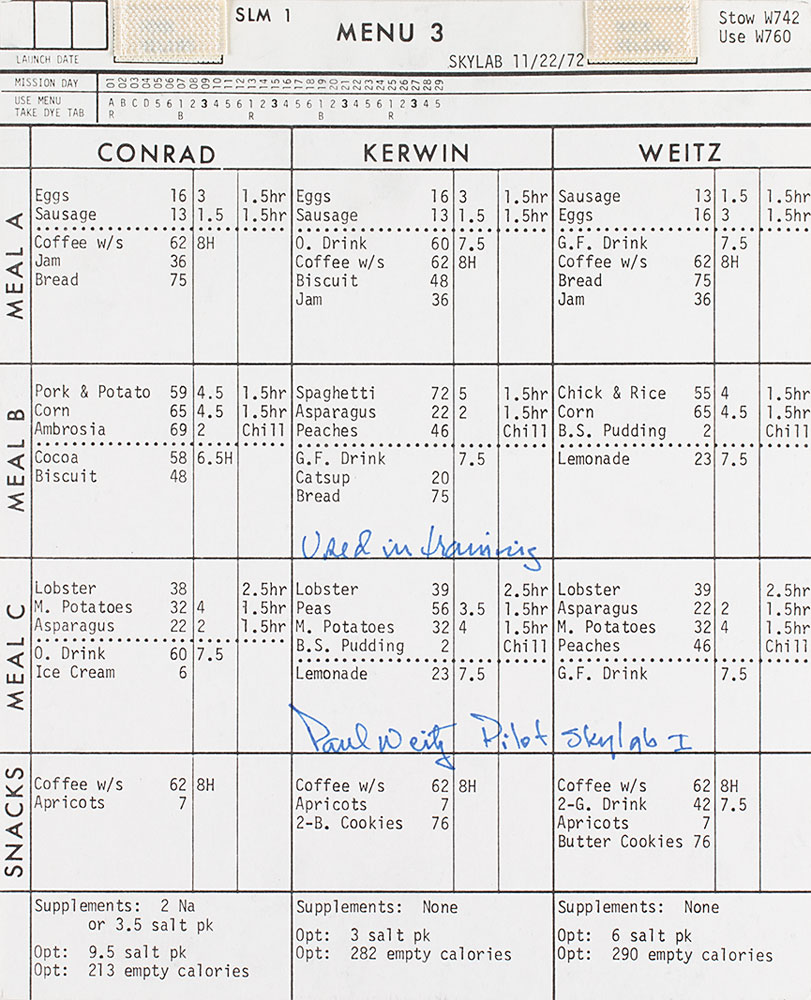 SLM 1
MENU 3
Stow W742
Use W760
LAUNCH DATE
SKYLAB 11/22/72
MISSION DAY 01 02 03 04 05 06 07 08 09 10 11 12 13 14 15 16 17 18 19 20 21 22 23 24 25 26 27 28 29
USE MENU A B C D 5 6 1 2 3 4 5 6 1 2 3 4 5 6 1 2 3 4 5 6 1 2 3 4 5
TAKE DYE TAB R B R B R
CONRAD KERWIN WEITZ
MEAL A
Eggs 16 3 1.5hr Eggs 16 3 1.5hr Sausage 13 1.5 1.5hr
Sausage 13 1.5 1.5hr Sausage 13 1.5 1.5hr Eggs 16 3 1.5hr
Coffee w/s 62 8H O. Drink 60 7.5 G.F. Drink 7.5
Jam 36 Coffee w/s 62 8H Coffee w/s 62 8H
Bread 75 Biscuit 48 Bread 75
Jam 36 Jam 36
MEAL B
Pork & Potato 59 4.5 1.5hr Spaghetti 72 5 1.5hr Chick & Rice 55 4 1.5hr
Corn 65 4.5 1.5hr Asparagus 22 2 1.5hr Corn 65 4.5 1.5hr
Ambrosia 69 2 Chill Peaches 46 Chill B.S. Pudding 2 Chill
Cocoa 58 6.5H G.F. Drink 7.5 Lemonade 23 7.5
Biscuit 48 Catsup 20
Bread 75
Used in training
MEAL C
Lobster 38 2.5hr Lobster 39 2.5hr Lobster 39 2.5hr
M. Potatoes 32 4 1.5hr Peas 56 3.5 1.5hr Asparagus 22 2 1.5hr
Asparagus 22 2 1.5hr M. Potatoes 32 4 1.5hr M. Potatoes 32 4 1.5hr
B.S. Pudding 2 Chill Peaches 46 Chill
O. Drink 60 7.5 Lemonade 23 7.5 G.F. Drink 7.5
Ice Cream 6
Paul Weitz Pilot Skylab I
SNACKS
Coffee w/s 62 8H Coffee w/s 62 8H Coffee w/s 62 8H
Apricots 7 Apricots 7 2-G. Drink 42 7.5
2-B. Cookies 76 Apricots 7
Butter Cookies 76
Supplements: 2 Na Supplements: None Supplements: None
or 3.5 salt pk
Opt: 9.5 salt pk Opt: 3 salt pk Opt: 6 salt pk
Opt: 213 empty calories Opt: 282 empty calories Opt: 290 empty calories